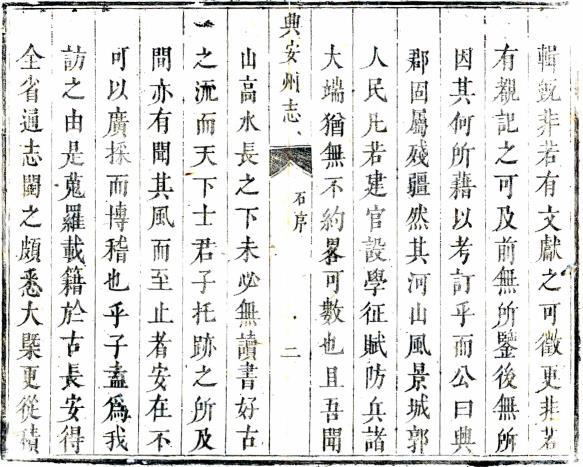 輯旣非若有文獻之可徵更非若
有覩記之可及前無所鑒後無所
因其何所藉以考訂乎而公曰興
郡固屬殘疆然其河山風景城郭
人民凡若建官設學征賦防兵諸
大端猶無不約畧可數也且吾聞
興安州志
石序
二
山高水長之下未必無讀書好古
之流而天下士君子托跡之所及
間亦有聞其風而至止者安在不
可以廣採而博稽也乎子盍爲我
訪之由是蒐羅載籍於古長安得
全省通志閱之頗悉大槩更從積